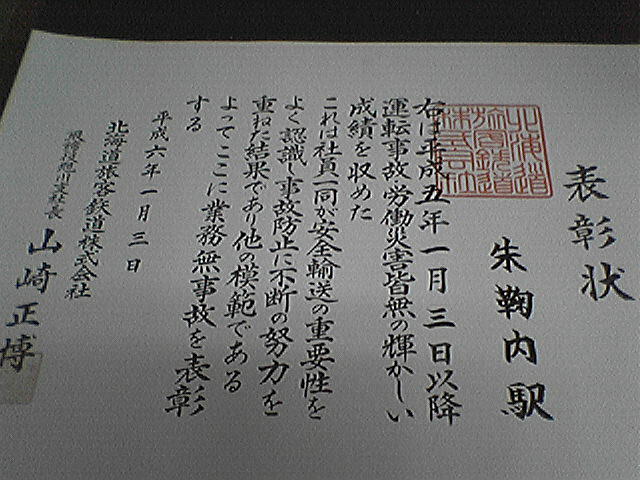 表彰状
朱鞠内駅
右は平成五年一月三日以降
運転事故労働災害皆無の輝かしい
成績を収めた
これは社員一同が安全輸送の重要性を
よく認識し事故防止に不断の努力を
重ねた結果であり他の模範である
よってここに業務無事故を表彰
する
平成六年一月三日
北海道旅客鉄道株式会社
旭川支社長
山崎正博
北海道
旅客鉄道
株式会社